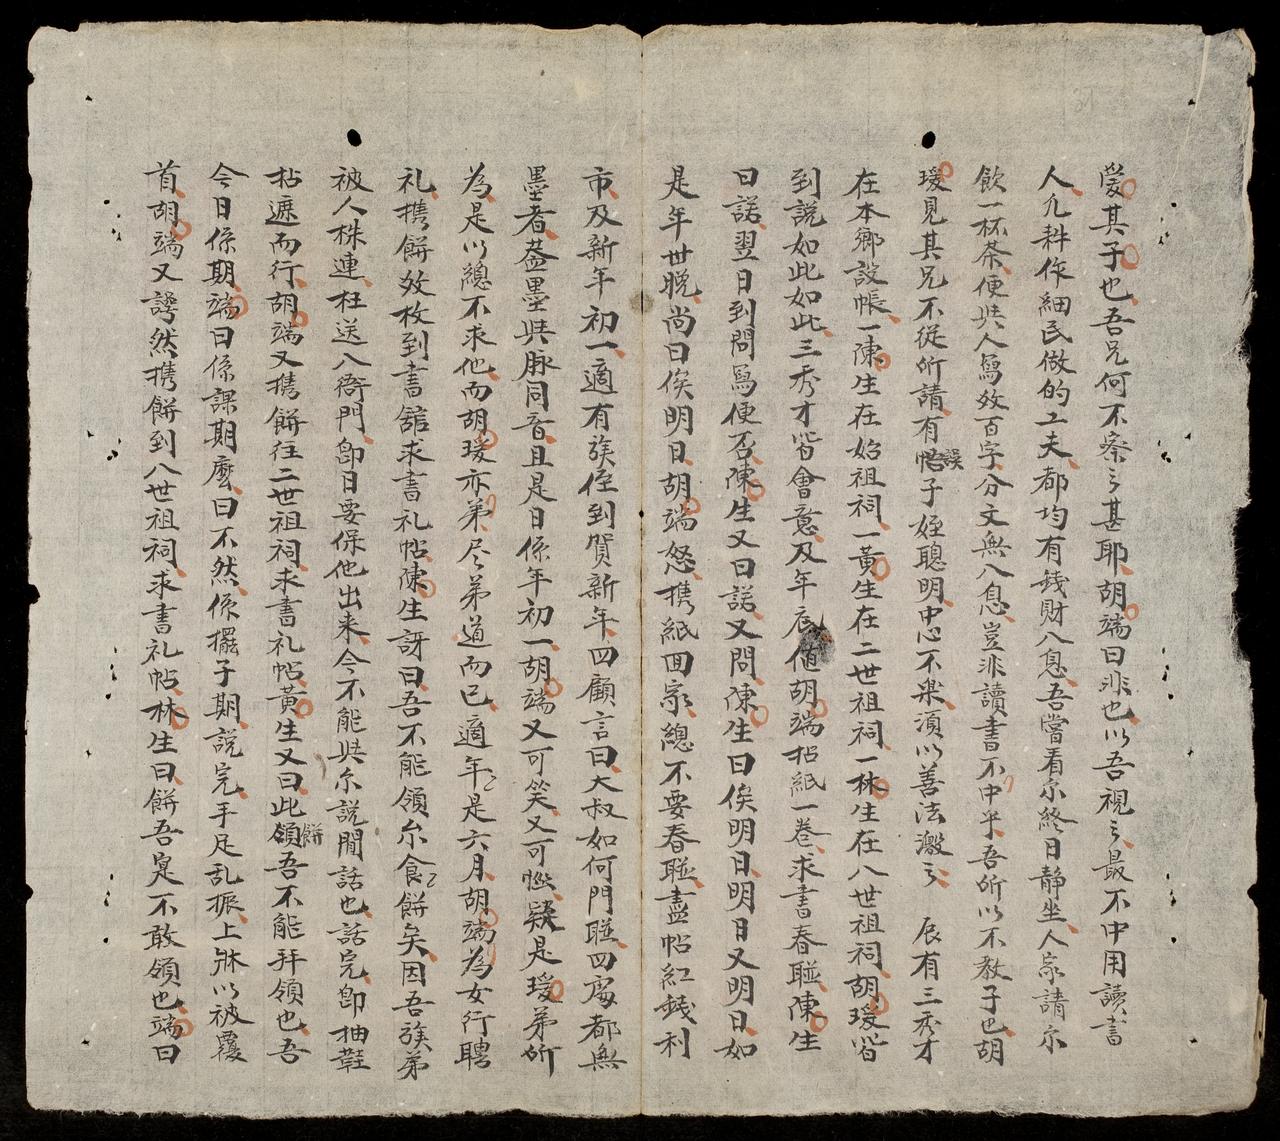 愛其子也吾兄何不察之甚耶胡端曰非也以吾視之最不中用讀書
人凡耕作細民做的工夫都均有錢財入息吾嘗看尔終日静坐人家請尔
飲一杯茶便與人寫效百字分文無入息豈非讀書不中乎吾所以不教子也胡
瑗見其兄不從所請有悞子姪聰明中心不樂湏以善法激之 辰有三秀才
在本鄉設帳一陳生在始祖祠一黄生在二世祖祠一林生在八世祖祠胡瑗皆
到說如此如此三秀才皆會意及年底值胡端拈紙一卷求書春聯陳生
曰諾翌日到問寫便否陳生又曰諾又問陳生曰俟明日明日又明日如
是年世晚尚曰俟明日胡端怒携紙回家總不要春聯盡帖紅錢利
市及新年初一適有族侄到賀新年四顧言曰大叔如何門聯四處都無
墨者葢墨與脉同音且是日係年初一胡端又可笑又可惱疑是瑗弟所
為是以總不求他而胡瑗亦弟尽弟道而已適年是六月胡端為女行聘
礼携餅效枚到書舘求書礼帖陳生訝曰吾不能領尔食餅矣因吾族弟
被人株連枉送入衙門即日要保他出来今不能與尔說閒話也話完即抽鞋
拈遮而行胡端又携餅往二世祖祠求書礼帖黄生又曰此餅吾不能拜領也吾
今日係期端曰係課期麽曰不然係擺子期說完手足乱振上牀以被覆
首胡端又愕然携餅到八世祖祠求書礼帖林生曰餅吾寔不敢領也端曰